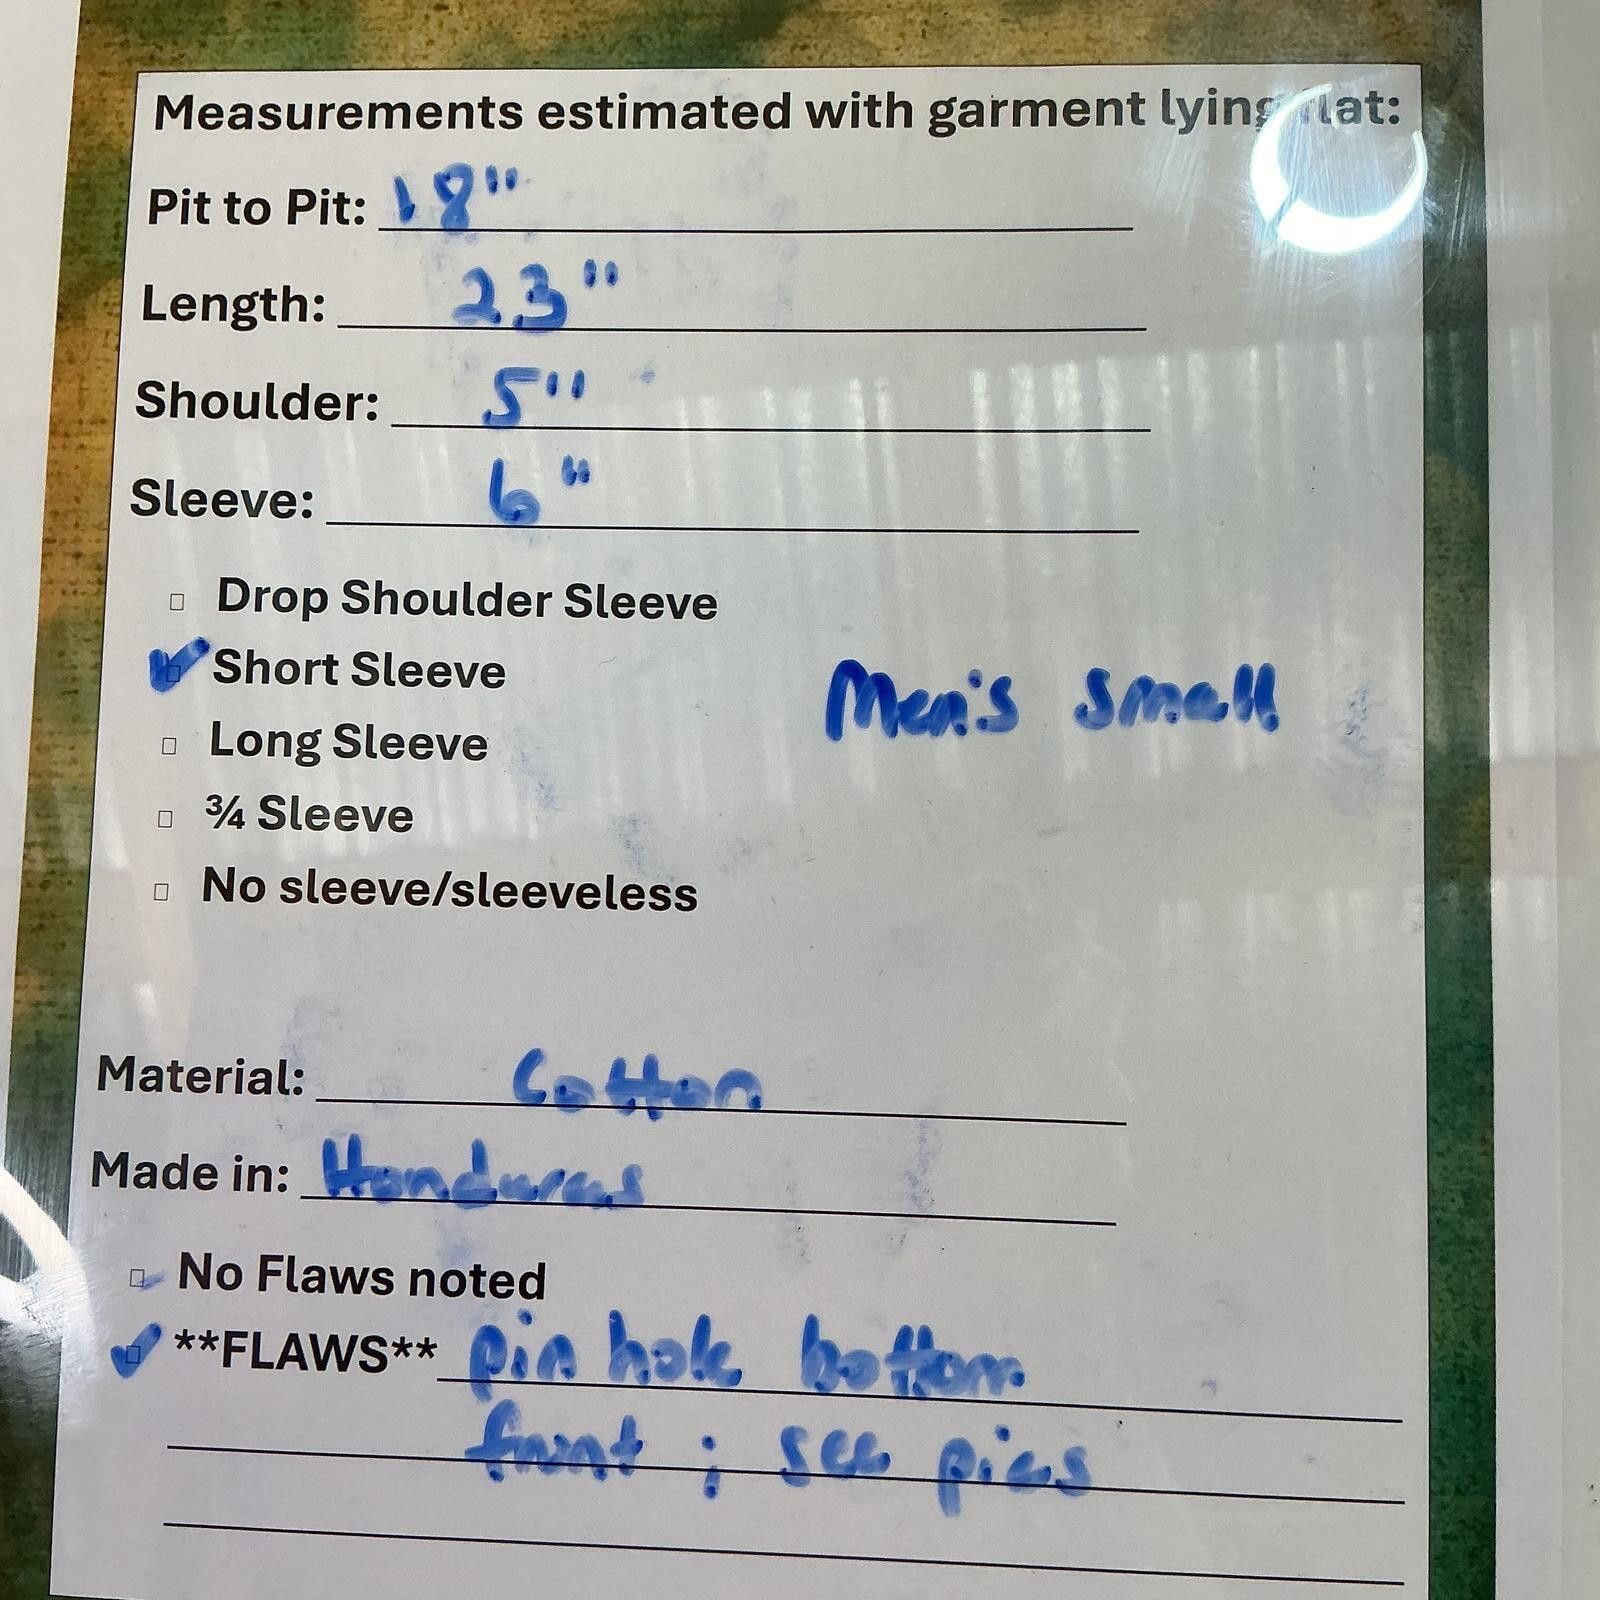 Measurements estimated with garment lying flat:
Pit to Pit: 18"
Length: 23"
Shoulder: 5"
Sleeve: 6"
Drop Shoulder Sleeve
Short Sleeve
Men's small
Long Sleeve
¾ Sleeve
No sleeve/sleeveless
Material: Cotton
Made in: Honduras
No Flaws noted
**FLAWS** pin hole bottom
front; see pics